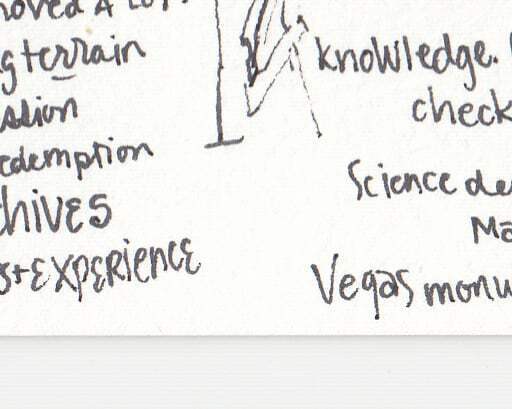 moved A LOT.
g terrain
edemption
chives
st experience
knowledge.
check
Science de
Ma
Vegas monu